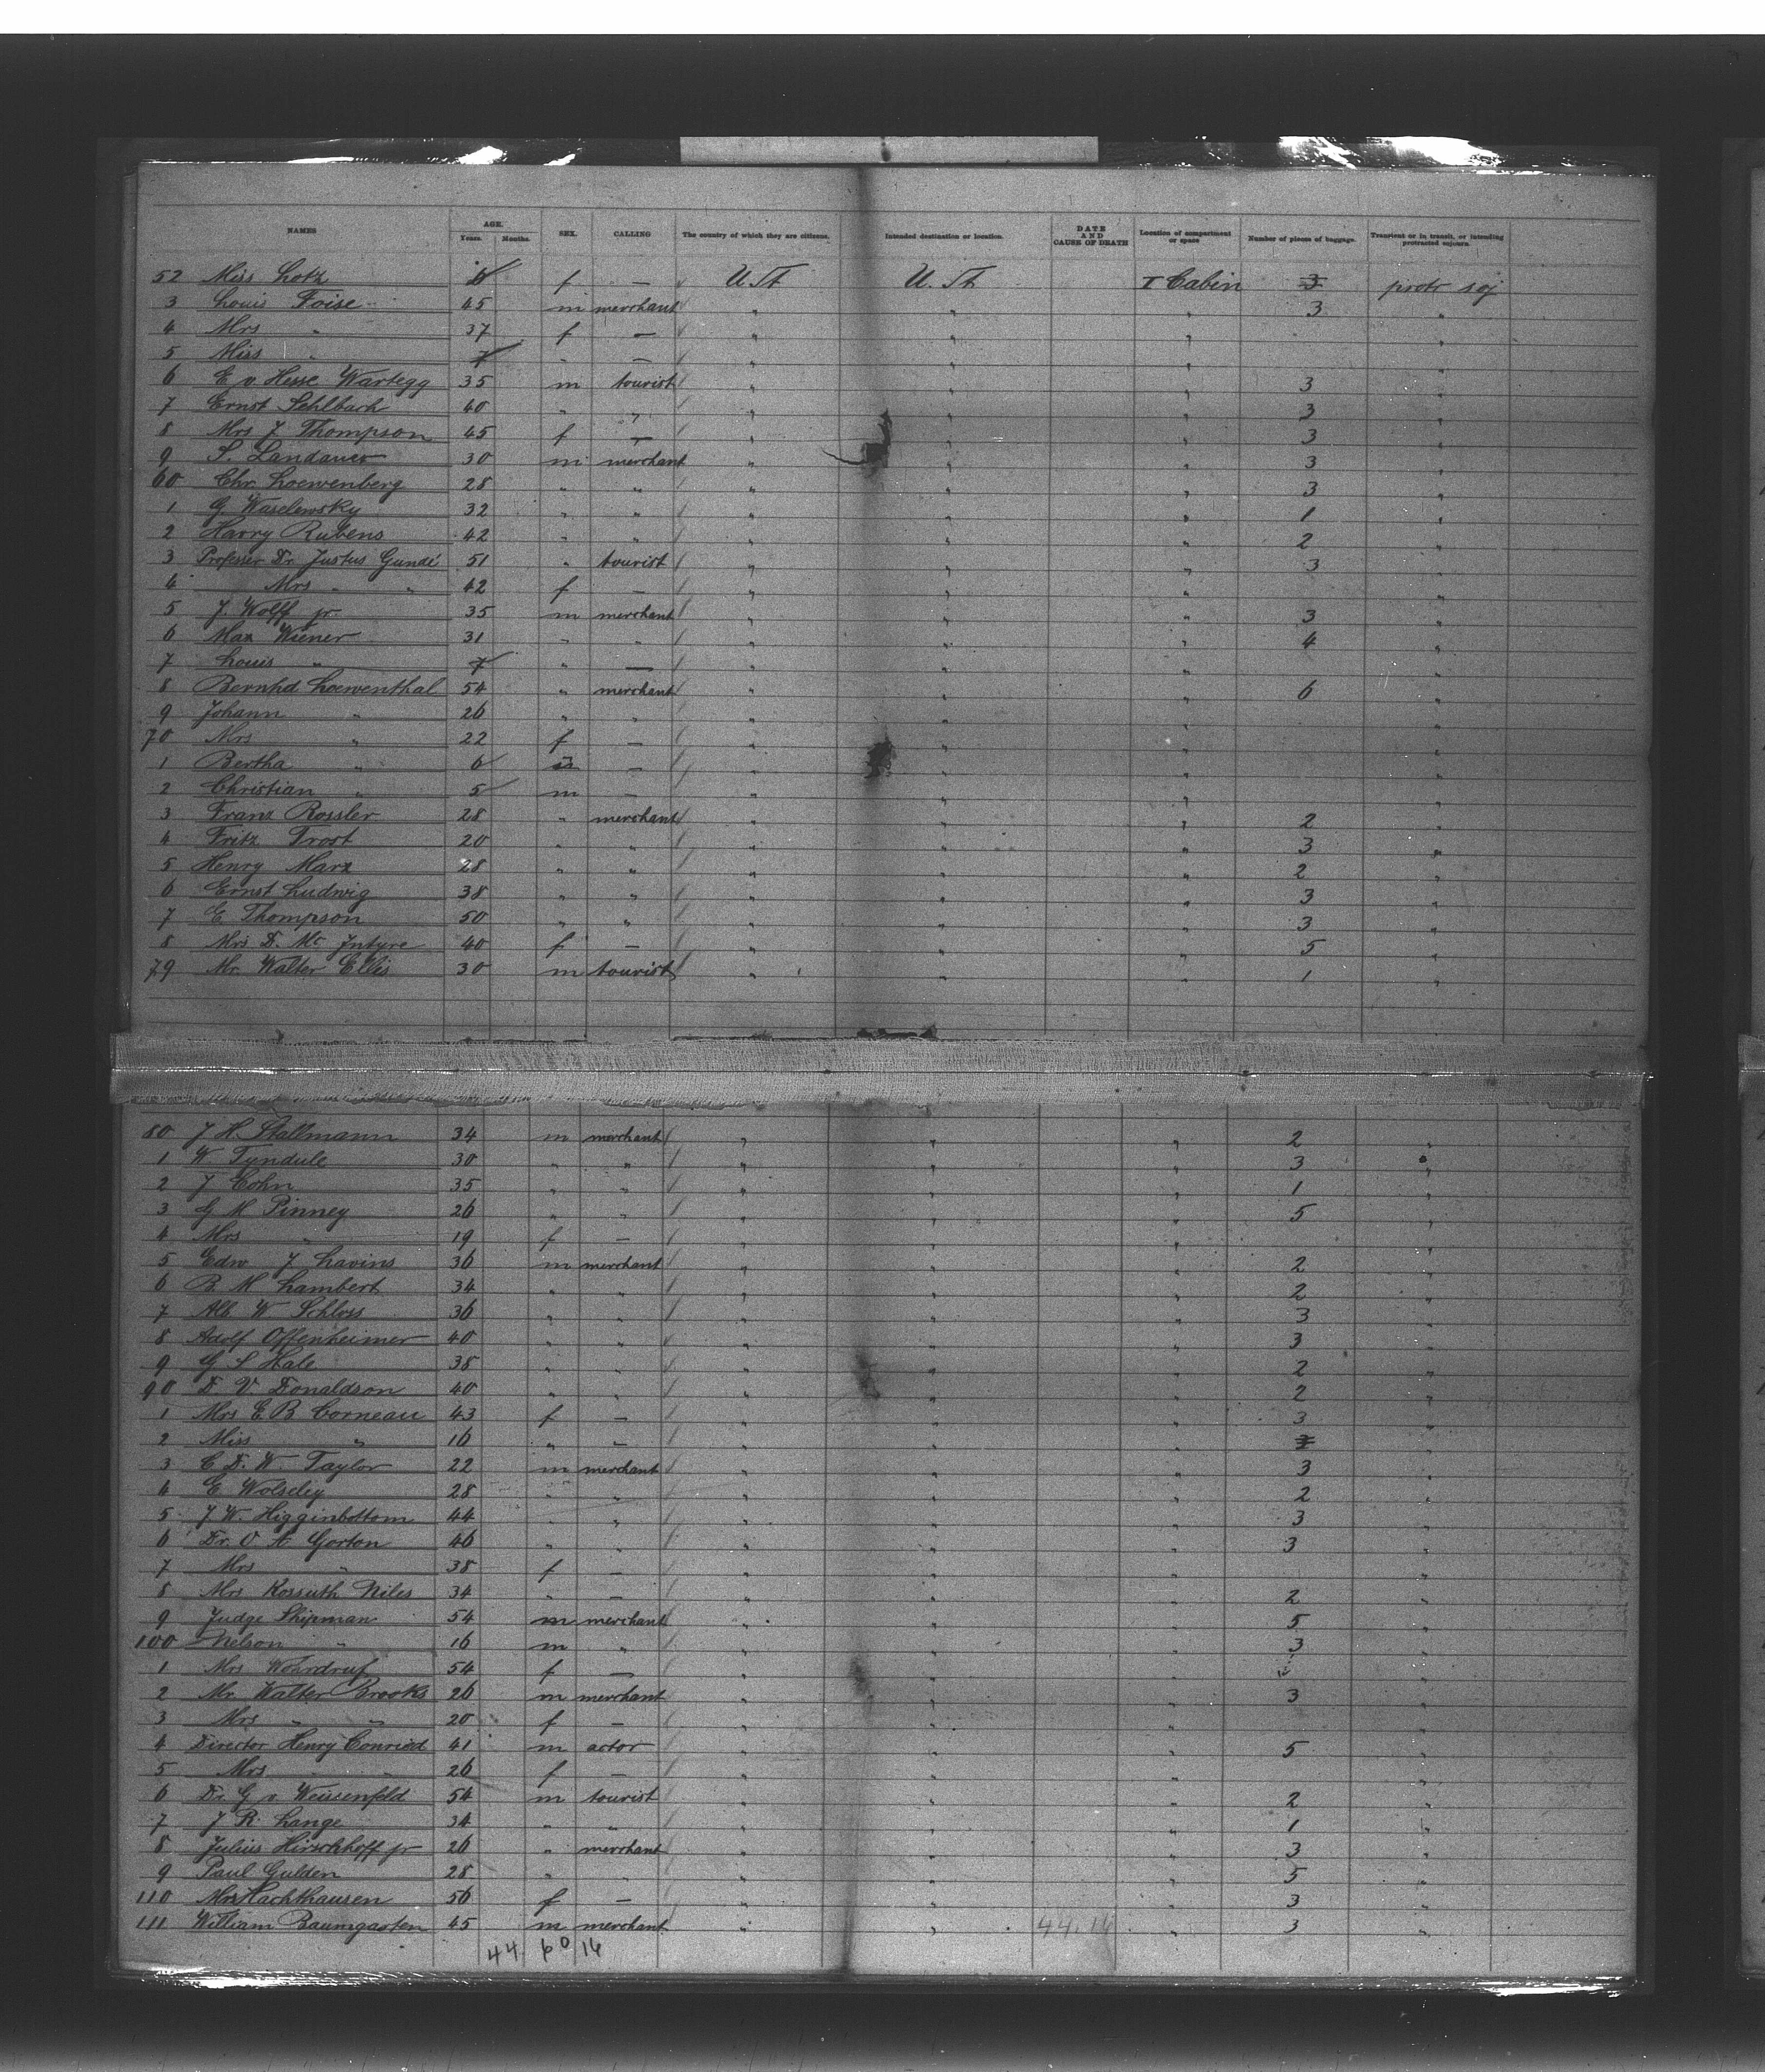 NAMES AGE. Years. Months. SEX. CALLING The country of which they are citizens. Intended destination or location. DATE AND CAUSE OF DEATH Location of compartment or space Number of pieces of baggage. Transient or in transit, or intending protracted sojourn
52 Miss Lotz f — U. St U. St I Cabin 3 protr soj
3 Louis Foise 45 m merchant " " " 3 "
4 Mrs " 37 f — " " " "
5 Miss " 7 " — " " " "
6 E v Hesse Wartegg 35 m tourist " " " 3 "
7 Ernst Sehlbach 40 " " " " " 3 "
8 Mrs J Thompson 45 f — " " " 3 "
9 S. Landauer 30 m merchant " " " 3 "
60 Chr. Loewenberg 28 " " " " " 3 "
1 G. Waselewsky 32 " " " " " 1 "
2 Harry Rubens 42 " " " " " 2 "
3 Professor Dr. Justus Gundé 51 " tourist " " " 3 "
4 Mrs " " 42 f — " " " "
5 J. Wolff jr. 35 m merchant " " " 3 "
6 Max Wiener 31 " " " " " 4 "
7 Louis " 7 " — " " " "
8 Bernhd Loewenthal 54 " merchant " " " 6 "
9 Johann " 26 " " " " " "
70 Mrs " 22 f — " " " "
1 Bertha " 6 " — " " " "
2 Christian " 5 m — " " " "
3 Franz Rossler 28 " merchant " " " 2 "
4 Fritz Trost 20 " " " " " 3 "
5 Henry Marx 28 " " " " " 2 "
6 Ernst Ludwig 38 " " " " " 3 "
7 E Thompson 50 " " " " " 3 "
8 Mrs D. Mc Intyre 40 f — " " " 5 "
79 Mr. Walter Ellis 30 m tourist " " " 1 "
80 J H. Stallmann 34 m merchant " " " 2 "
1 W Tyndule 30 " " " " " 3 "
2 J Cohn 35 " " " " " 1 "
3 G M Pinney 26 " " " " " 5 "
4 Mrs " 19 f — " " " "
5 Edw J Lavins 36 m merchant " " " 2 "
6 B. M Lambert 34 " " " " " 2 "
7 Alb W Schloss 36 " " " " " 3 "
8 Adolf Offenheimer 40 " " " " " 3 "
9 G S Hale 38 " " " " " 2 "
90 D. V. Donaldson 40 " " " " " 2 "
1 Mrs E B Corneau 43 f — " " " 3 "
2 Miss " 16 " — " " " "
3 C D. W. Taylor 22 m merchant " " " 3 "
4 E Wolseley 28 " " " " " 2 "
5 J W. Higginbottom 44 " " " " " 3 "
6 Dr. O A Gorton 46 " " " " " 3 "
7 Mrs " 38 f — " " " "
8 Mrs Kossuth Niles 34 " — " " " 2 "
9 Judge Shipman 54 m merchant " " " 5 "
100 Nelson " 16 m " " " " 3 "
1 Mrs Woardruf 54 f — " " " "
2 Mr. Walter Brooks 26 m merchant " " " 3 "
3 Mrs " " 20 f — " " " "
4 Director Henry Conried 41 m actor " " " 5 "
5 Mrs " " 26 f — " " " "
6 Dr. G v Weisenfeld 54 m tourist " " " 2 "
7 J R. Lange 34 " " " " " 1 "
8 Julius Hirschhoff jr 26 " merchant " " " 3 "
9 Paul Gulden 28 " " " " " 5 "
110 Mrs Hachthausen 56 f — " " " 3 "
111 William Baumgarten 45 m merchant " " 44.16 " 3 "
44 60 16